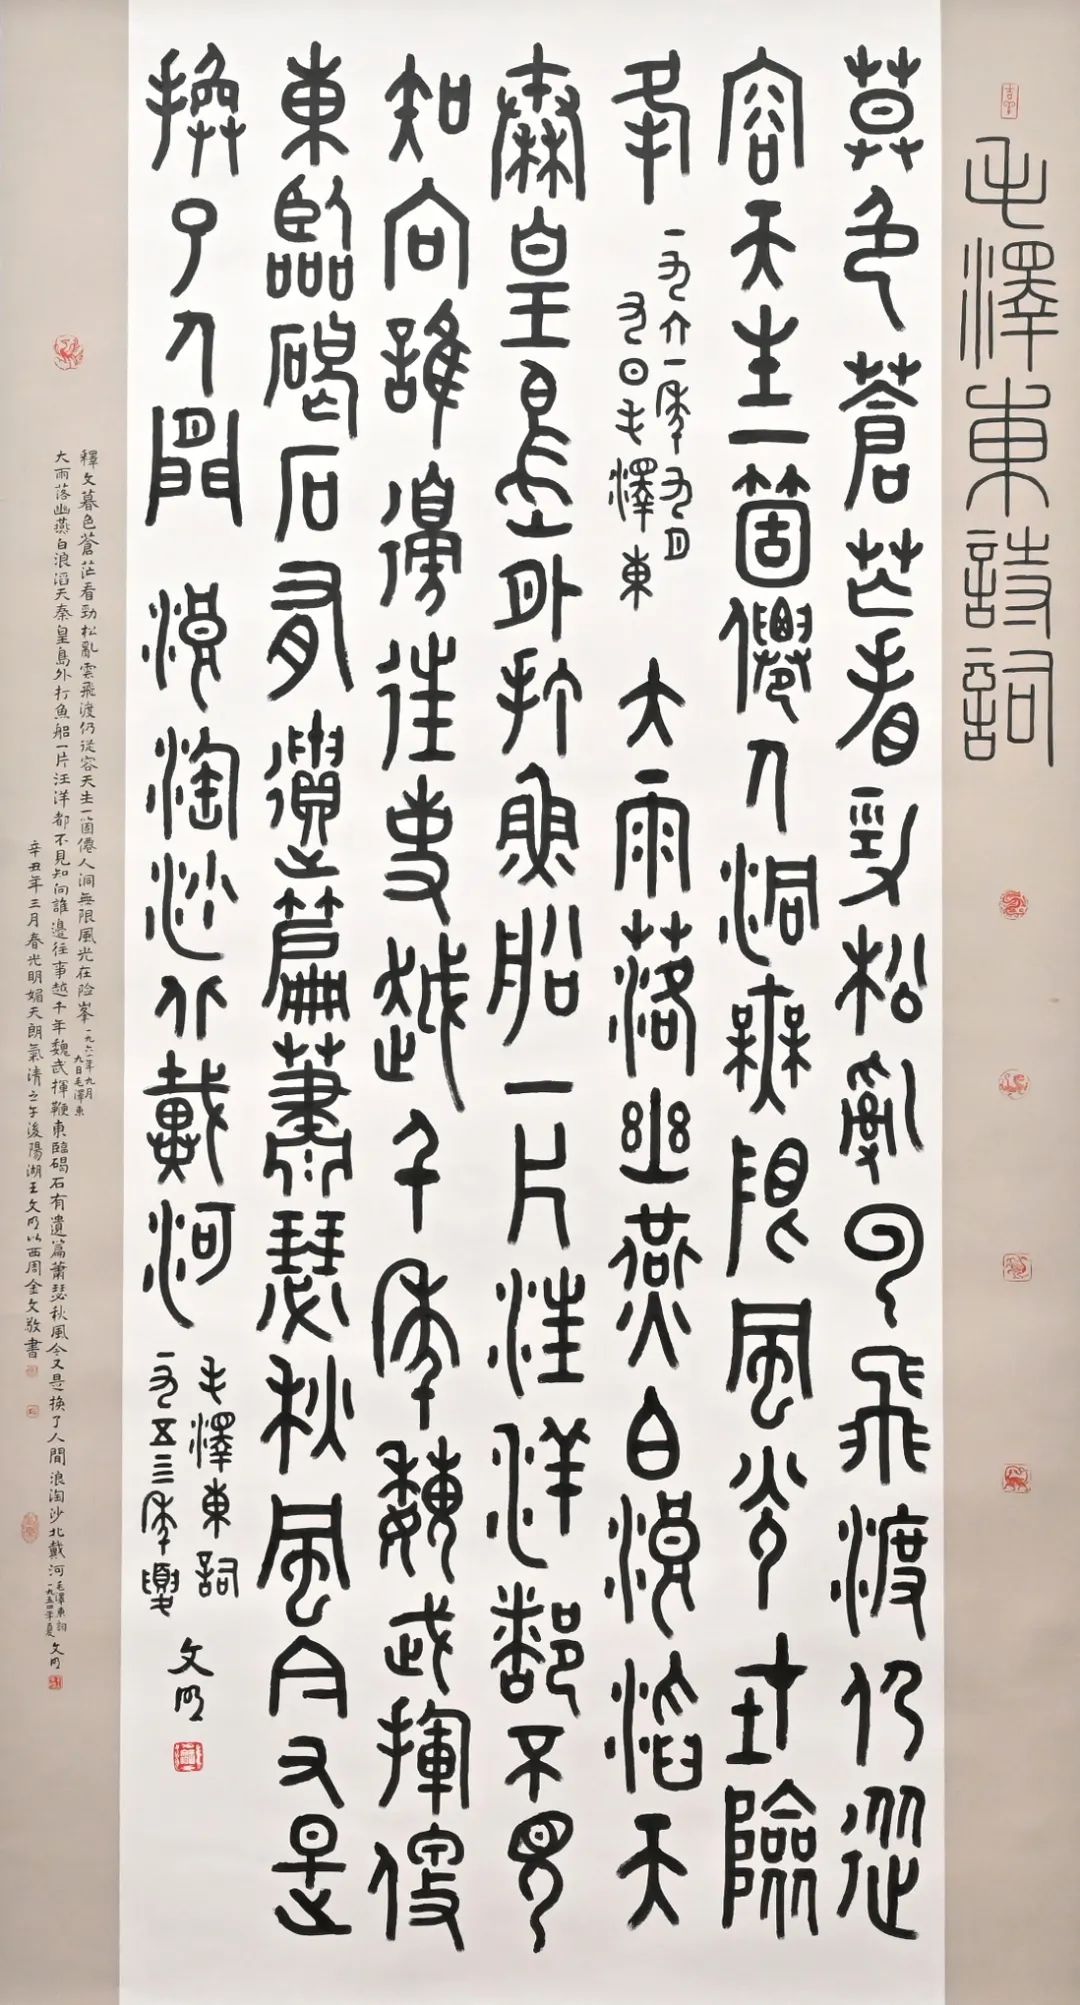 毛澤東詩詞
莫色蒼芒看勁松亂雲飛渡仍從
容天生一箇僊人洞無限風光在險
峯
一九六一年九月
九日毛澤東
大雨落幽燕白浪滔天
秦皇島外打魚船一片汪洋都不見
知向誰邊往事越千年魏武揮鞭
東臨碣石有遺篇蕭瑟秋風今又是
換了人間 浪淘沙北戴河
毛澤東詞
一九五三年夏
文明
釋文暮色蒼茫看勁松亂雲飛渡仍從容天生一箇僊人洞無限風光在险峯
一九六一年九月
九日毛澤東
大雨落幽燕白浪滔天秦皇島外打魚船一片汪洋都不見知向誰邊往事越千年魏武揮鞭東臨碣石有遺篇蕭瑟秋風今又是换了人間浪淘沙北戴河
毛澤東詞
一九五四年夏
文明
辛丑年三月春光明媚天朗氣清之午後陽湖王文明以西周金文敬書